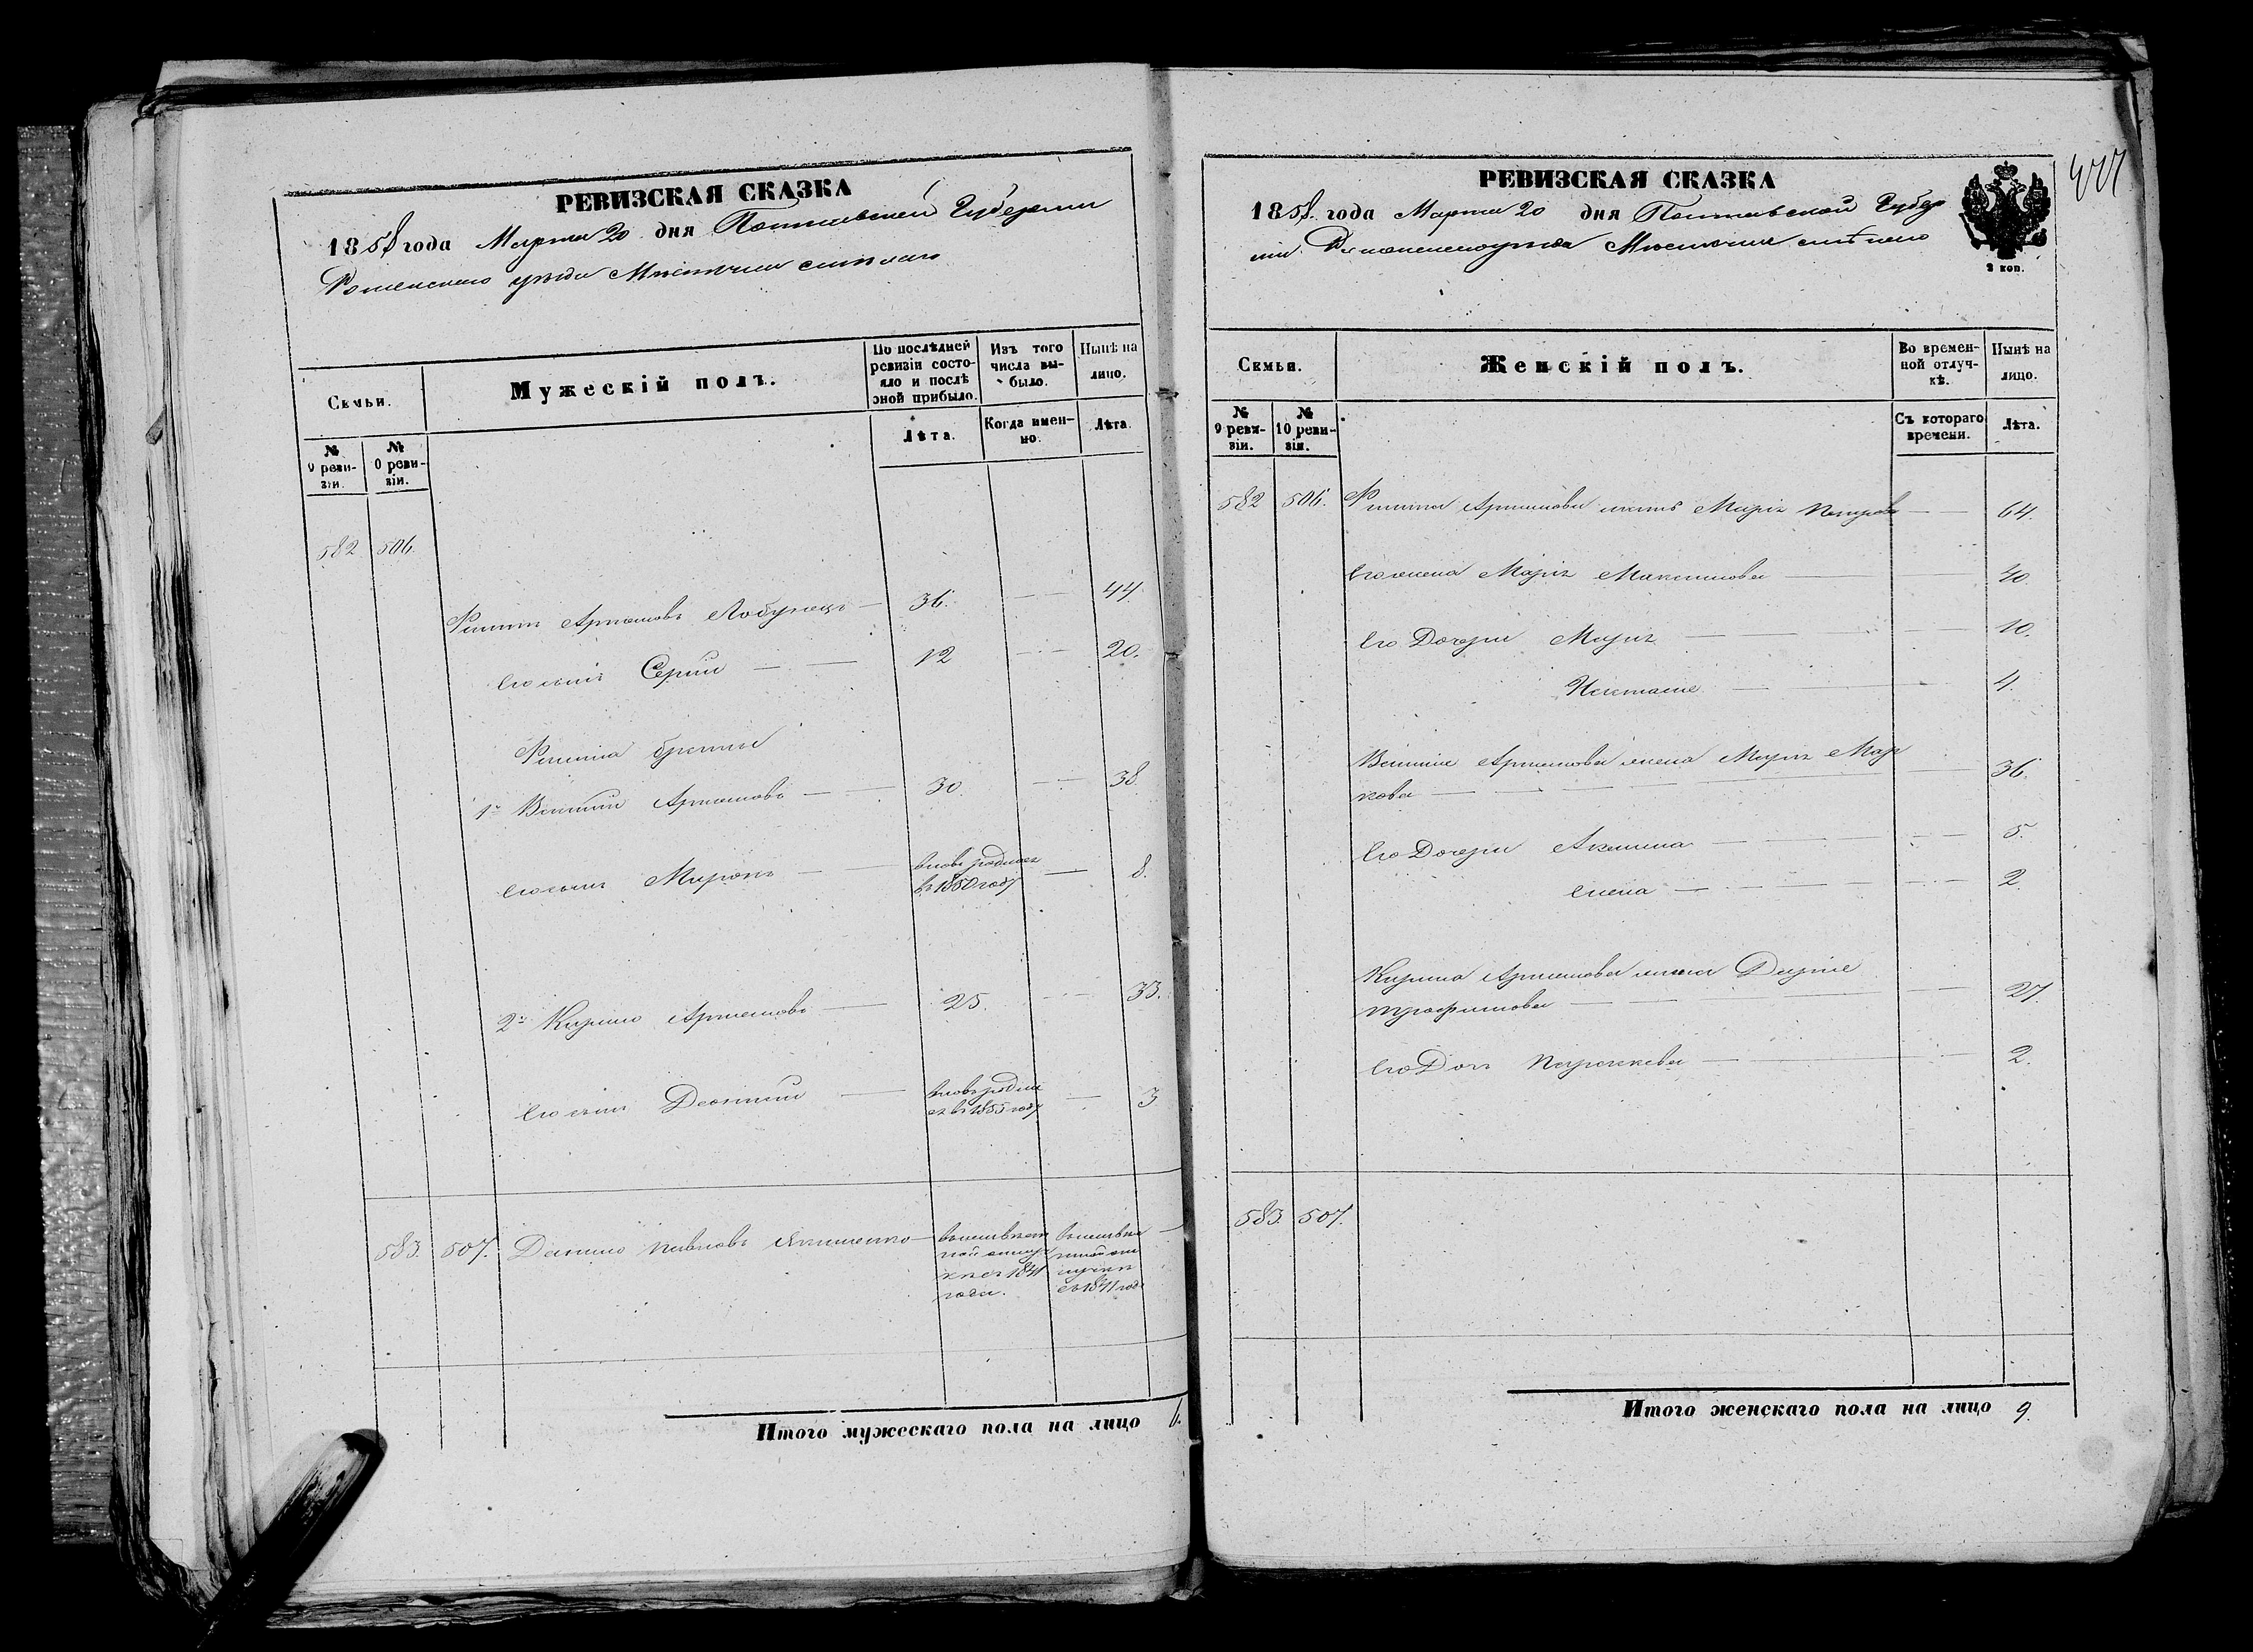 РЕВИЗСКАЯ СКАЗКА
1858 года Марта 20 дня Полтавской Губернии
Роменскаго уѣзда Мѣстечка Смѣлаго
Семьи.
Мужескій полъ.
По послѣдней ревизіи состояло и послѣ оной прибыло.
Изъ того числа выбыло.
Нынѣ на лицо.
№ 9 ревизіи.
№ 10 ревизіи.
Лѣта.
Когда именно.
Лѣта.
582. 506.
Артемовъ 36. 44.
Его сынъ Сергій 12 20.
братья
1й Артемовъ 30. 38.
Его сынъ Миронъ вновь родился въ 1850 году 8.
2й Кирило Артемовъ 25. 33.
Его сынъ Леонтій вновь родился въ 1855 году 3
583. 507. Данило Павловъ
съ 1841 года.
съ 1841 года
Итого мужескаго пола на лицо 6.
РЕВИЗСКАЯ СКАЗКА
1858 года Марта 20 дня Полтавской Губер
ніи Роменскаго уѣзда Мѣстечка Смѣлаго
2 коп.
Семьи.
Женскій полъ.
Во временной отлучкѣ.
Нынѣ на лицо.
№ 9 ревизіи.
№ 10 ревизіи.
Съ котораго времени.
Лѣта.
582 506. Артемова мать Марія Петрова 64.
Его жена Марія Максимова 40.
Его Дочери Марія 10.
4.
Артемова жена Марія Мар
кова 36.
Его Дочери Акилина 5.
Елена 2.
Кирила Артемова жена Дарія
Трофимова 27.
Его Дочь Параскева 2.
583. 507.
Итого женскаго пола на лицо 9.